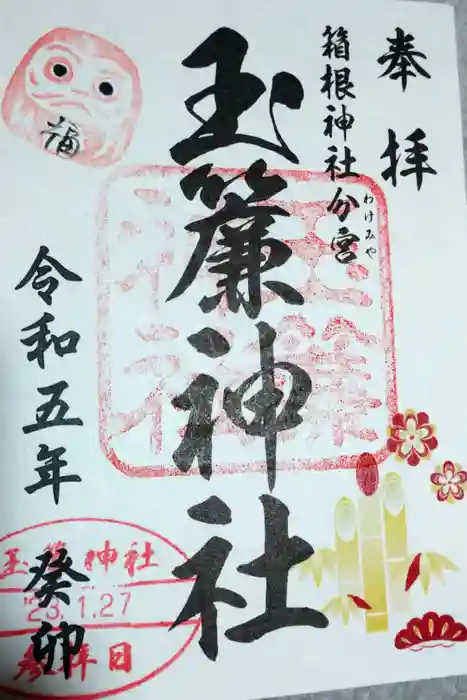 奉拝
箱根神社分宮
わけみや
玉簾神社
玉簾神社
福
令和五年
癸卯
玉簾神社
'23.1.27
参拝日